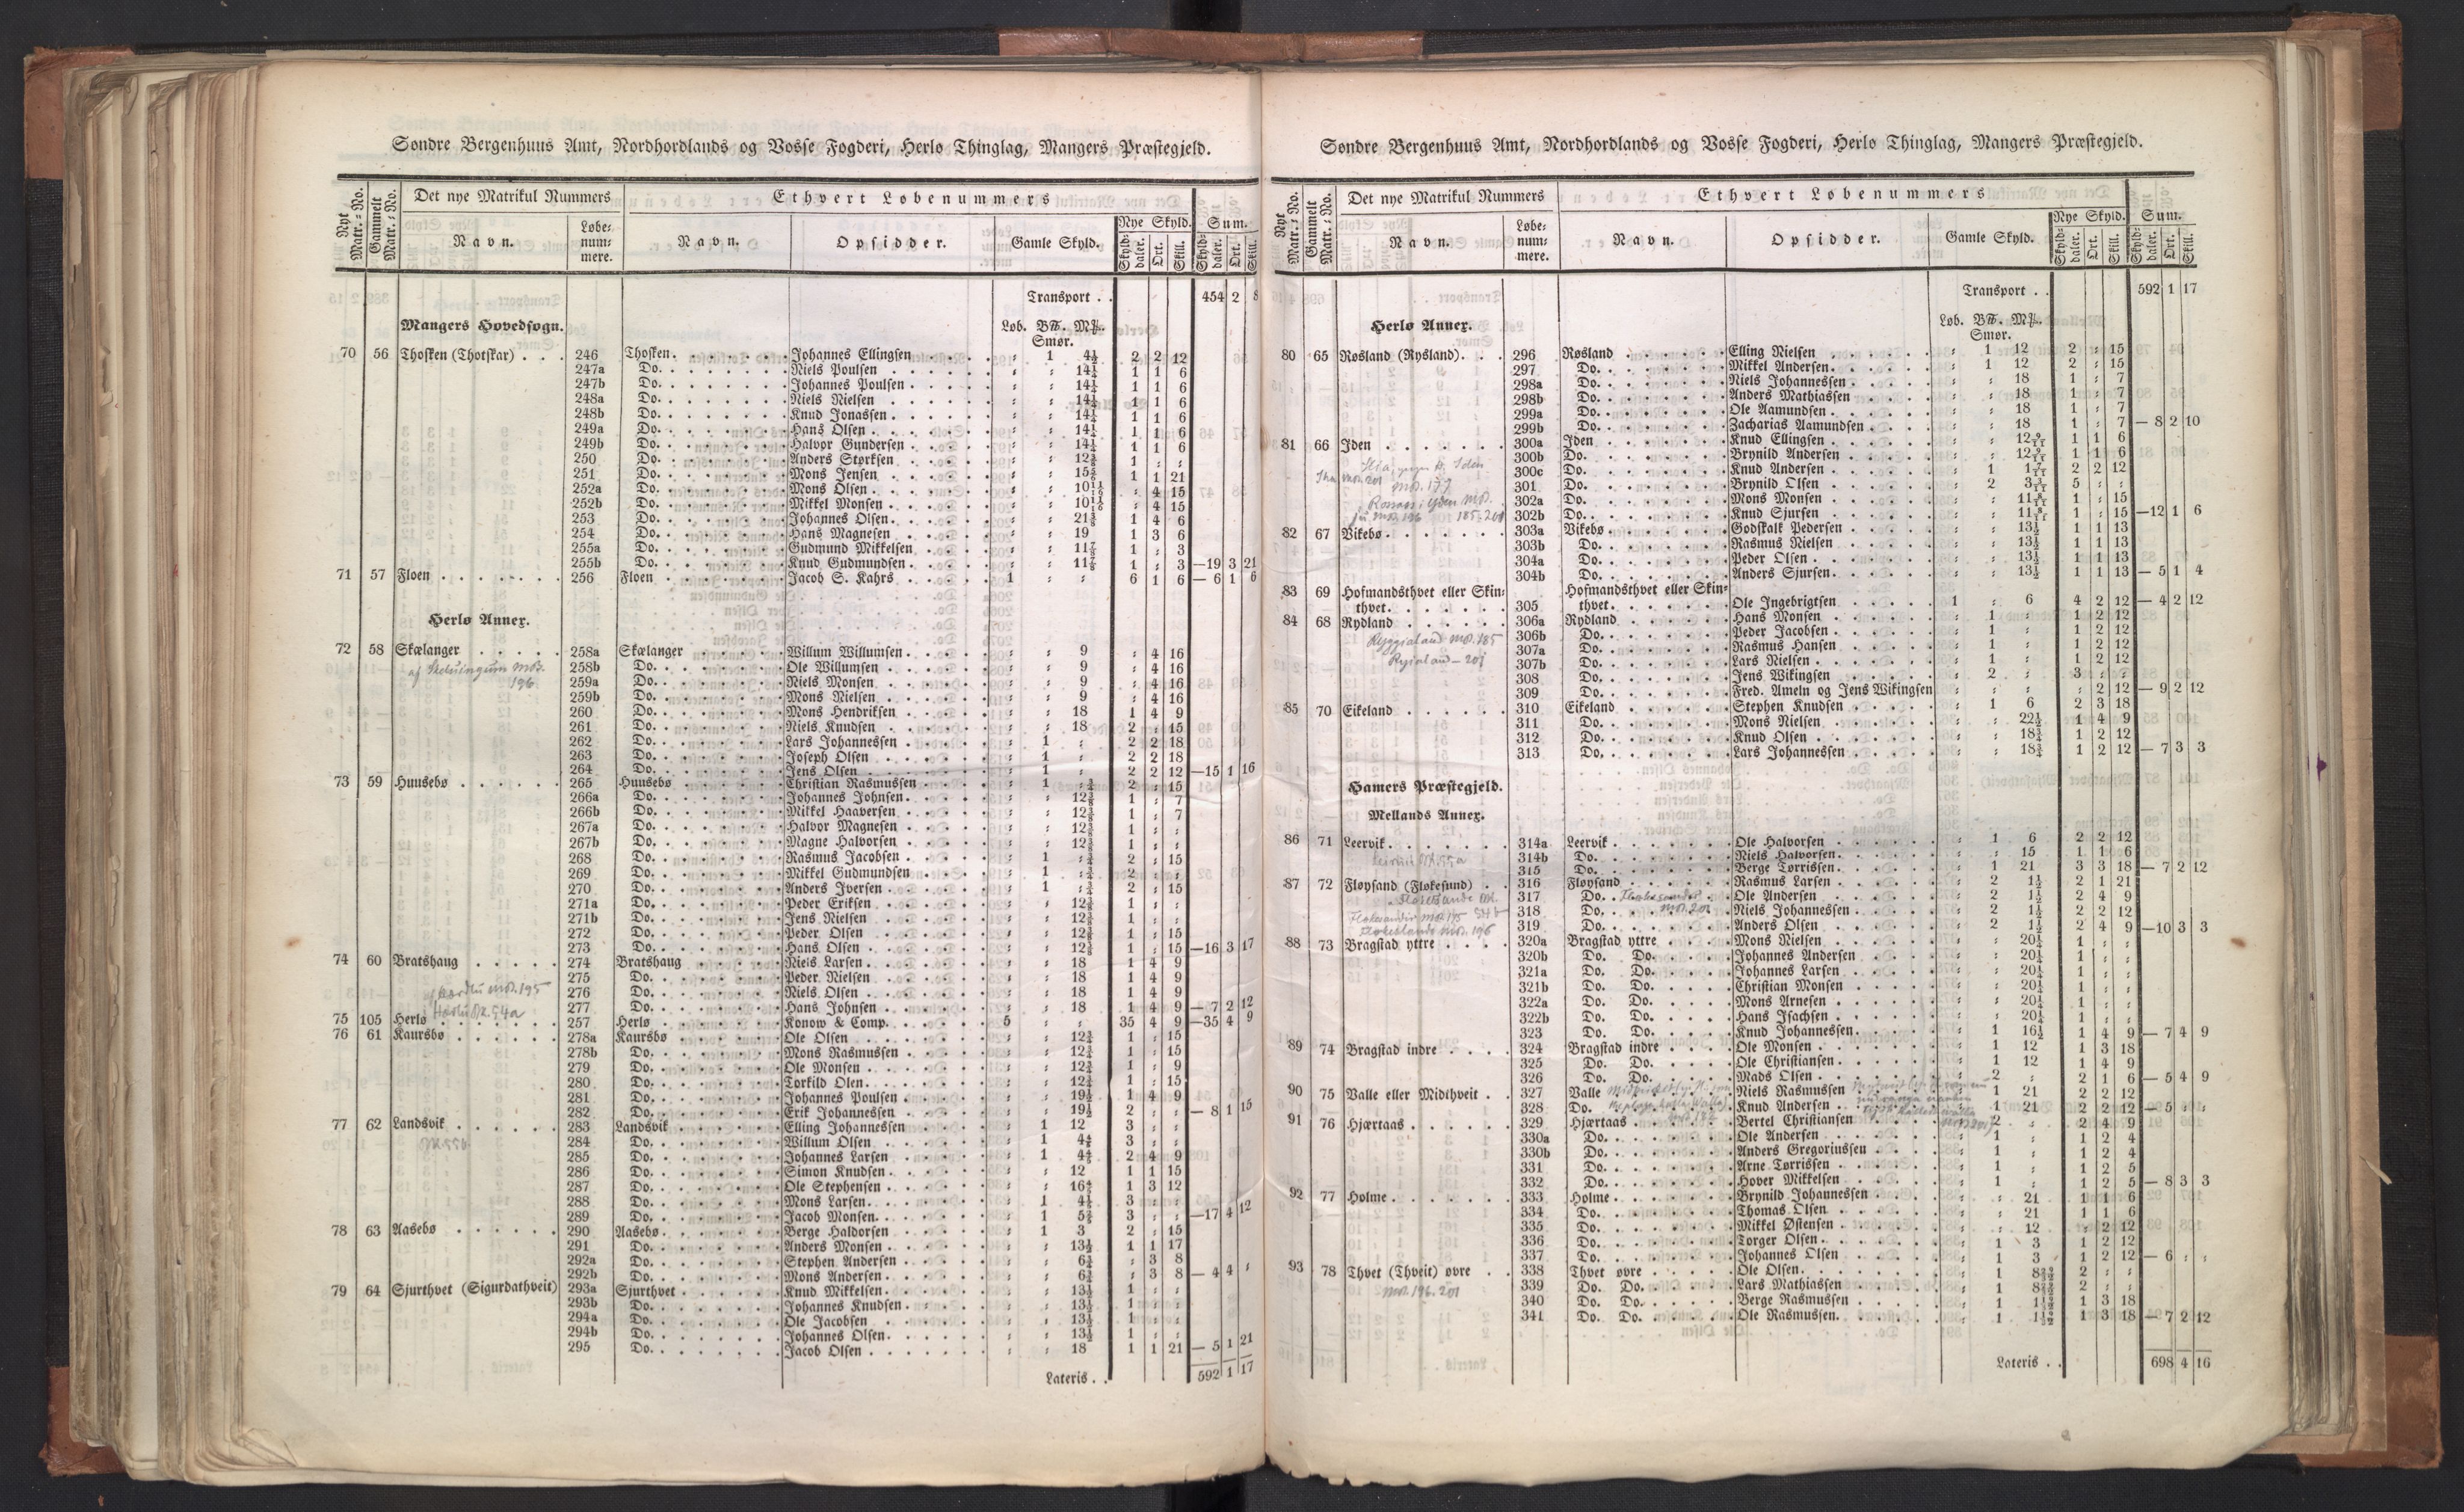 Søndre Bergenhuus Amt, Nordhordlands og Vosse Fogderi, Herlø Thinglag, Mangers Præstegjeld.
Nyt Matr.-No. Gammelt Matr.-No. Det nye Matrikul Nummers Ethvert Løbenummers
Navn. Løbe-nummere. Navn. Opsidder. Gamle Skyld. Nye Skyld. Sum.
Skylddaler. Ort. Skill. Skylddaler. Ort. Skill.
Transport . . 454 2 8
Mangers Hovedsogn. Løb. B℔. M℔.
Smør.
70 56 Thosken (Thotskar) . . . 246 Thosken. Johannes Ellingsen : 1 4½ 2 2 12
247a Do. Niels Poulsen : : 14¼ 1 1 6
247b Do. Johannes Poulsen : : 14¼ 1 1 6
248a Do. Niels Nielsen : : 14¼ 1 1 6
248b Do. Knud Jonassen : : 14¼ 1 1 6
249a Do. Hans Olsen : : 14¼ 1 1 6
249b Do. Halvor Gundersen : : 14¼ 1 1 6
250 Do. Anders Styrksen : : 12⅜ 1 : :
251 Do. Mons Jensen : : 15 1 1 21
252a Do. Mons Olsen : : 10 : 4 15
252b Do. Mikkel Monsen : : 10 : 4 15
253 Do. Johannes Olsen : : 21⅜ 1 4 6
254 Do. Hans Magnesen : : 19 1 3 6
255a Do. Gudmund Mikkelsen : : 11⅞ 1 : 3
255b Do. Knud Gudmundsen : : 11⅞ 1 : 3 —19 3 21
71 57 Floen 256 Floen Jacob S. Kahrs 1 : : 6 1 6 — 6 1 6
Herlø Annex.
72 58 Skælanger 258a Skælanger Willum Willumsen : : 9 : 4 16
258b Do. Ole Willumsen : : 9 : 4 16
259a Do. Niels Monsen : : 9 : 4 16
196
259b Do. Mons Nielsen : : 9 : 4 16
260 Do. Mons Hendriksen : : 18 1 4 9
261 Do. Niels Knudsen : : 18 2 : 15
262 Do. Lars Johannessen : 1 : 2 2 18
263 Do. Joseph Olsen : 1 : 2 2 18
264 Do. Jens Olsen : 1 : 2 2 12 —15 1 16
73 59 Huusebø 265 Huusebø Christian Rasmussen : 1 ¾ 2 : 15
266a Do. Johannes Johnsen : : 12⅜ 1 : 7
266b Do. Mikkel Haaversen : : 12⅜ 1 : 7
267a Do. Halvor Magnesen : : 12⅜ 1 : :
267b Do. Magne Halvorsen : : 12⅜ 1 : :
268 Do. Rasmus Jacobsen : 1 ¾ 2 : 15
269 Do. Mikkel Gudmundsen : 1 ¾ 2 : :
270 Do. Anders Iversen : 1 ¾ 2 : 15
271a Do. Peder Eriksen : : 12⅜ 1 : :
271b Do. Jens Nielsen : : 12⅜ 1 : :
272 Do. Peder Olsen : : 12⅜ 1 : 15
273 Do. Hans Olsen : : 12⅜ 1 : 15 —16 3 17
74 60 Bratshaug 274 Bratshaug Niels Larsen : : 18 1 4 9
275 Do. Peder Nielsen : : 18 1 4 9
276 Do. Niels Olsen : : 18 1 4 9
277 Do. Hans Johnsen : : 18 1 4 9 — 7 2 12
75 105 Herlø 257 Herlø Konow & Comp. 5 : : 35 4 9 —35 4 9
76 61 Kaursbø 278a Kaursbø Ole Olsen : : 12¾ 1 : 15
278b Do. Mons Rasmussen : : 12¾ 1 : 15
279 Do. Ole Monsen : : 12¾ 1 : 9
280 Do. Torkild Olen. : : 12¾ 1 : 15
281 Do. Johannes Poulsen : : 19½ 1 4 9
282 Do. Erik Johannessen : : 19½ 2 : : — 8 1 15
77 62 Landsvik 283 Landsvik Elling Johannessen : 1 12 3 : :
284 Do. Willum Olsen : 1 4⅘ 3 : :
285 Do. Johannes Larsen : 1 4⅘ 2 4 9
286 Do. Simon Knudsen : : 12 1 1 15
287 Do. Ole Stephensen : : 16⅘ 1 3 12
288 Do. Mons Larsen : 1 4 3 : :
289 Do. Jacob Monsen : 1 5 3 : : —17 4 12
78 63 Aasebø 290 Aasebø Berge Haldorsen : 1 3 2 : 15
291 Do. Anders Monsen : : 13½ 1 1 17
292a Do. Stephen Andersen : : 6¾ : 3 8
292b Do. Mons Andersen : : 6¾ : 3 8 — 4 4 :
79 64 Sjurthvet (Sigurdathveit) 293a Sjurthvet Knud Mikkelsen : : 13½ 1 : :
293b Do. Johannes Knudsen : : 13½ 1 : :
294a Do. Ole Jacobsen : : 13½ 1 : :
294b Do. Johannes Olsen : : 13½ 1 : :
295 Do. Jacob Olsen : : 18 1 1 21 — 5 1 21
Lateris . . 592 1 17
Søndre Bergenhuus Amt, Nordhordlands og Vosse Fogderi, Herlø Thinglag, Mangers Præstegjeld.
Nyt Matr.-No. Gammelt Matr.-No. Det nye Matrikul Nummers Ethvert Løbenummers
Navn. Løbe-nummere. Navn. Opsidder. Gamle Skyld. Nye Skyld. Sum.
Skylddaler. Ort. Skill. Skylddaler. Ort. Skill.
Transport . . 592 1 17
Herlø Annex. Løb. B℔. M℔.
Smør.
80 65 Røsland (Rysland) 296 Røsland Elling Nielsen : 1 12 2 : 15
297 Do. Mikkel Andersen : 1 12 2 : 15
298a Do. Niels Johannessen : : 18 1 : 7
298b Do. Anders Mathiassen : : 18 1 : 7
299a Do. Ole Aamundsen : : 18 1 : 7
299b Do. Zacharias Aamundsen : : 18 1 : 7 — 8 2 10
81 66 Iden 300a Iden Knud Ellingsen : : 12 9/11 1 1 6
300b Do. Brynild Andersen : : 12 9/11 1 1 6
300c Do. Knud Andersen : 1 1 7/11 2 2 12
301 Do. Brynild Olsen : 2 3 3/11 5 : :
302a Do. Mons Monsen : : 11 8/11 1 : 15
302b Do. Knud Sjursen : : 11 8/11 1 : 15 —12 1 6
82 67 Vikebø 303a Vikebø Godskalk Pedersen : : 13½ 1 1 13
303b Do. Rasmus Nielsen : : 13½ 1 1 13
304a Do. Peder Olsen : : 13½ 1 1 13
304b Do. Anders Sjursen : : 13½ 1 1 13 — 5 1 4
83 69 Hofmandsthvet eller Skin- Hofmandsthvet eller Skin-
thvet 305 thvet Ole Ingebrigtsen 1 : 6 4 2 12 — 4 2 12
84 68 Rydland 306a Rydland Hans Monsen : 1 : 1 2 12
306b Do. Peder Jacobsen : 1 : 1 2 12
307a Do. Rasmus Hansen : 1 : 1 2 12
307b Do. Lars Nielsen : 1 : 1 2 12
308 Do. Jens Wikingsen : 2 : 3 : :
309 Do. Fred. Ameln og Jens Wikingsen : : : : 2 12 — 9 2 12
85 70 Eikeland 310 Eikeland Stephen Knudsen : 1 6 2 3 18
311 Do. Mons Nielsen : : 22½ 1 4 9
312 Do. Knud Olsen : : 18¾ 1 2 12
313 Do. Lars Johannessen : : 18¾ 1 2 12 — 7 3 3
Hamers Præstegjeld.
Mellands Annex.
86 71 Leervik 314a Leervik Ole Halvorsen : 1 6 2 2 12
314b Do. Niels Halvorsen : : 15 1 1 6
315 Do. Berge Torrissen : 1 21 3 3 18 — 7 2 12
87 72 Fløysand (Flokesund) 316 Fløysand Rasmus Larsen : 2 1½ 2 1 21
317 Do. Ole Andersen : 2 1½ 2 4 9
318 Do. Niels Johannessen : 2 1½ 2 2 12
319 Do. Anders Olsen : 2 1½ 2 4 9 —10 3 3
88 73 Bragstad yttre 320a Bragstad yttre Mons Nielsen : : 20¼ 1 : :
320b Do. Do. Johannes Andersen : : 20¼ 1 : :
321a Do. Do. Johannes Larsen : : 20¼ 1 : :
321b Do. Do. Christian Monsen : : 20¼ 1 : :
322a Do. Do. Mons Arnesen : : 20¼ 1 : :
322b Do. Do. Hans Isachsen : : 20¼ 1 : :
323 Do. Do. Knud Johannessen : 1 16½ 1 4 9 — 7 4 9
89 74 Bragstad indre 324 Bragstad indre Ole Monsen : 1 12 1 3 18
325 Do. Do. Ole Christiansen : 1 12 1 4 9
326 Do. Do. Mads Olsen : 2 : 2 1 6 — 5 4 9
90 75 Valle eller Midthveit 327 Valle Niels Rasmussen : 1 21 2 2 12
328 Do. Knud Andersen : 1 21 2 2 12 — 5 : :
91 76 Hjærtaas 329 Hjærtaas Bertel Christiansen : 2 : 2 4 9
330a Do. Ole Andersen : 1 : 1 2 4
330b Do. Anders Gregoriussen : 1 : 1 2 4
331 Do. Arne Torrissen : 1 : 1 2 5
332 Do. Hover Mikkelsen : 1 : 1 2 5 — 8 3 3
92 77 Holme 333 Holme Brynild Johannessen : : 21 1 1 6
334 Do. Thomas Olsen : : 21 1 1 6
335 Do. Mikkel Østensen : : 12 : 2 12
336 Do. Torger Olsen : 1 3 1 2 12
337 Do. Johannes Olsen : 1 3 1 2 12 — 6 : :
93 78 Thvet (Thveit) øvre 338 Thvet øvre Ole Olsen : 1 8 2 : :
339 Do. Do. Lars Mathiassen : 1 8 2 : :
340 Do. Do. Berge Rasmussen : 1 1 1 3 18
341 Do. Do. Ole Rasmussen : 1 1 1 3 18 — 7 2 12
Lateris . . 698 4 16